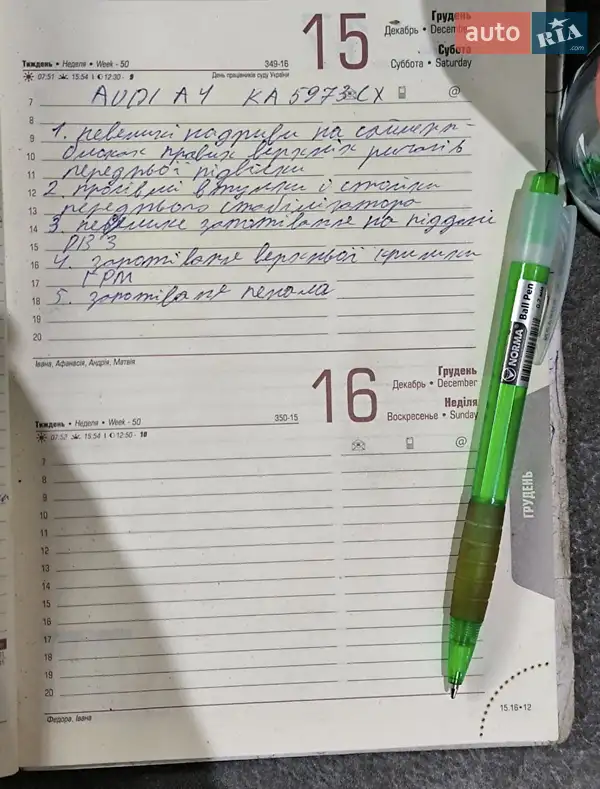 auto RIA .com
15
Грудень
Декабрь • Decemb
Субота
Суббота • Saturday
Тиждень • Неделя • Week - 50
349-16
07:51 15:54 12:30 - 9
День працівників суду України
@
7
AUDI A4 KA 5973 CX
8
9
1. невеликі надриви на сайлент-
10
блоках правих верхніх ричагів
11
передньої підвіски
12
2 просівші втулки і стойки
13
переднього стабілізатора
14
3. невелике запотівання на піддоні
15
ДВЗ
16
4. запотівання верхньої кришки
17
ГРМ
18
5. запотівання пенала
19
20
Івана, Афанасія, Андрія, Матвія
16
Грудень
Декабрь • December
Неділя
Воскресенье • Sunday
Тиждень • Неделя • Week - 50
350-15
07:52 15:54 12:50 - 10
@
7
8
9
10
11
12
13
14
15
16
17
18
19
20
Федора, Івана
ГРУДЕНЬ
15.16•12
NORMA Ball Pen 0.7 мм